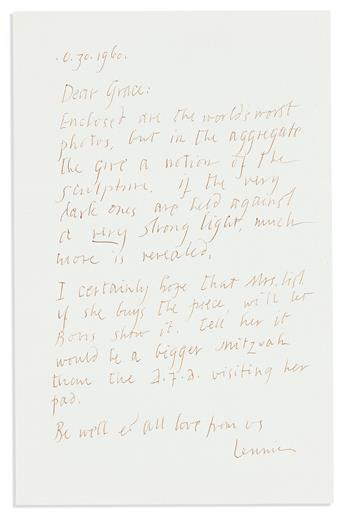 .0.30.1960.
Dear Grace:
Enclosed are the worlds worst
photos, but in the aggregate
the give a notion of the
sculpture. if the very
dark ones are held against
a very strong light, much
more is revealed.
I certainly hope that Mrs. List
if she buys the piece, will let
Boris show it. Tell her it
would be a bigger mitzvah
than the A.F.A. visiting her
pad.
Be well & all love from us
Lennie